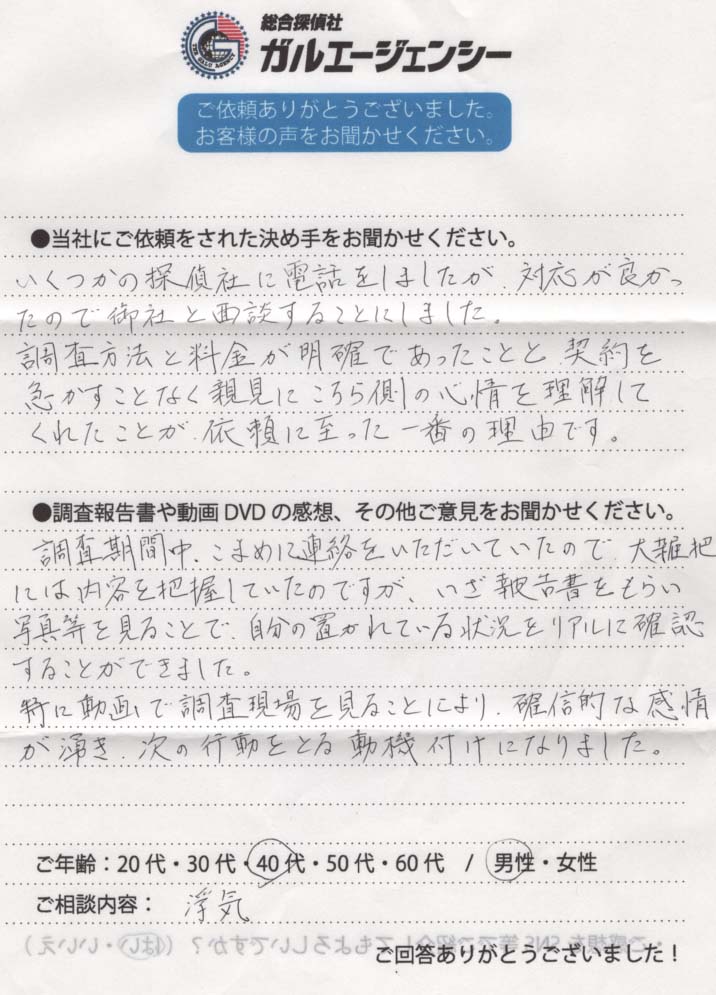 総合探偵社
ガルエージェンシー
THE GALU AGENCY
ご依頼ありがとうございました。
お客様の声をお聞かせください。
●当社にご依頼をされた決め手をお聞かせください。
いくつかの探偵社に電話をしましたが、対応が良かっ
たので御社と面談することにしました。
調査方法と料金が明確であったことと、契約を
急かすことなく親見にこちら側の心情を理解して
くれたことが、依頼に至った一番の理由です。
●調査報告書や動画DVDの感想、その他ご意見をお聞かせください。
調査期間中、こまめに連絡をいただいていたので、大雑把
には内容を把握していたのですが、いざ報告書をもらい
写真等を見ることで、自分の置かれている状況をリアルに確認
することができました。
特に動画で調査現場を見ることにより、確信的な感情
が湧き、次の行動をとる動機付けになりました。
ご年齢：20代・30代・40代・50代・60代 / 男性・女性
ご相談内容： 浮気
・ご感想をSNS等でご紹介してもよろしいですか？（はい・いいえ）
ご回答ありがとうございました！